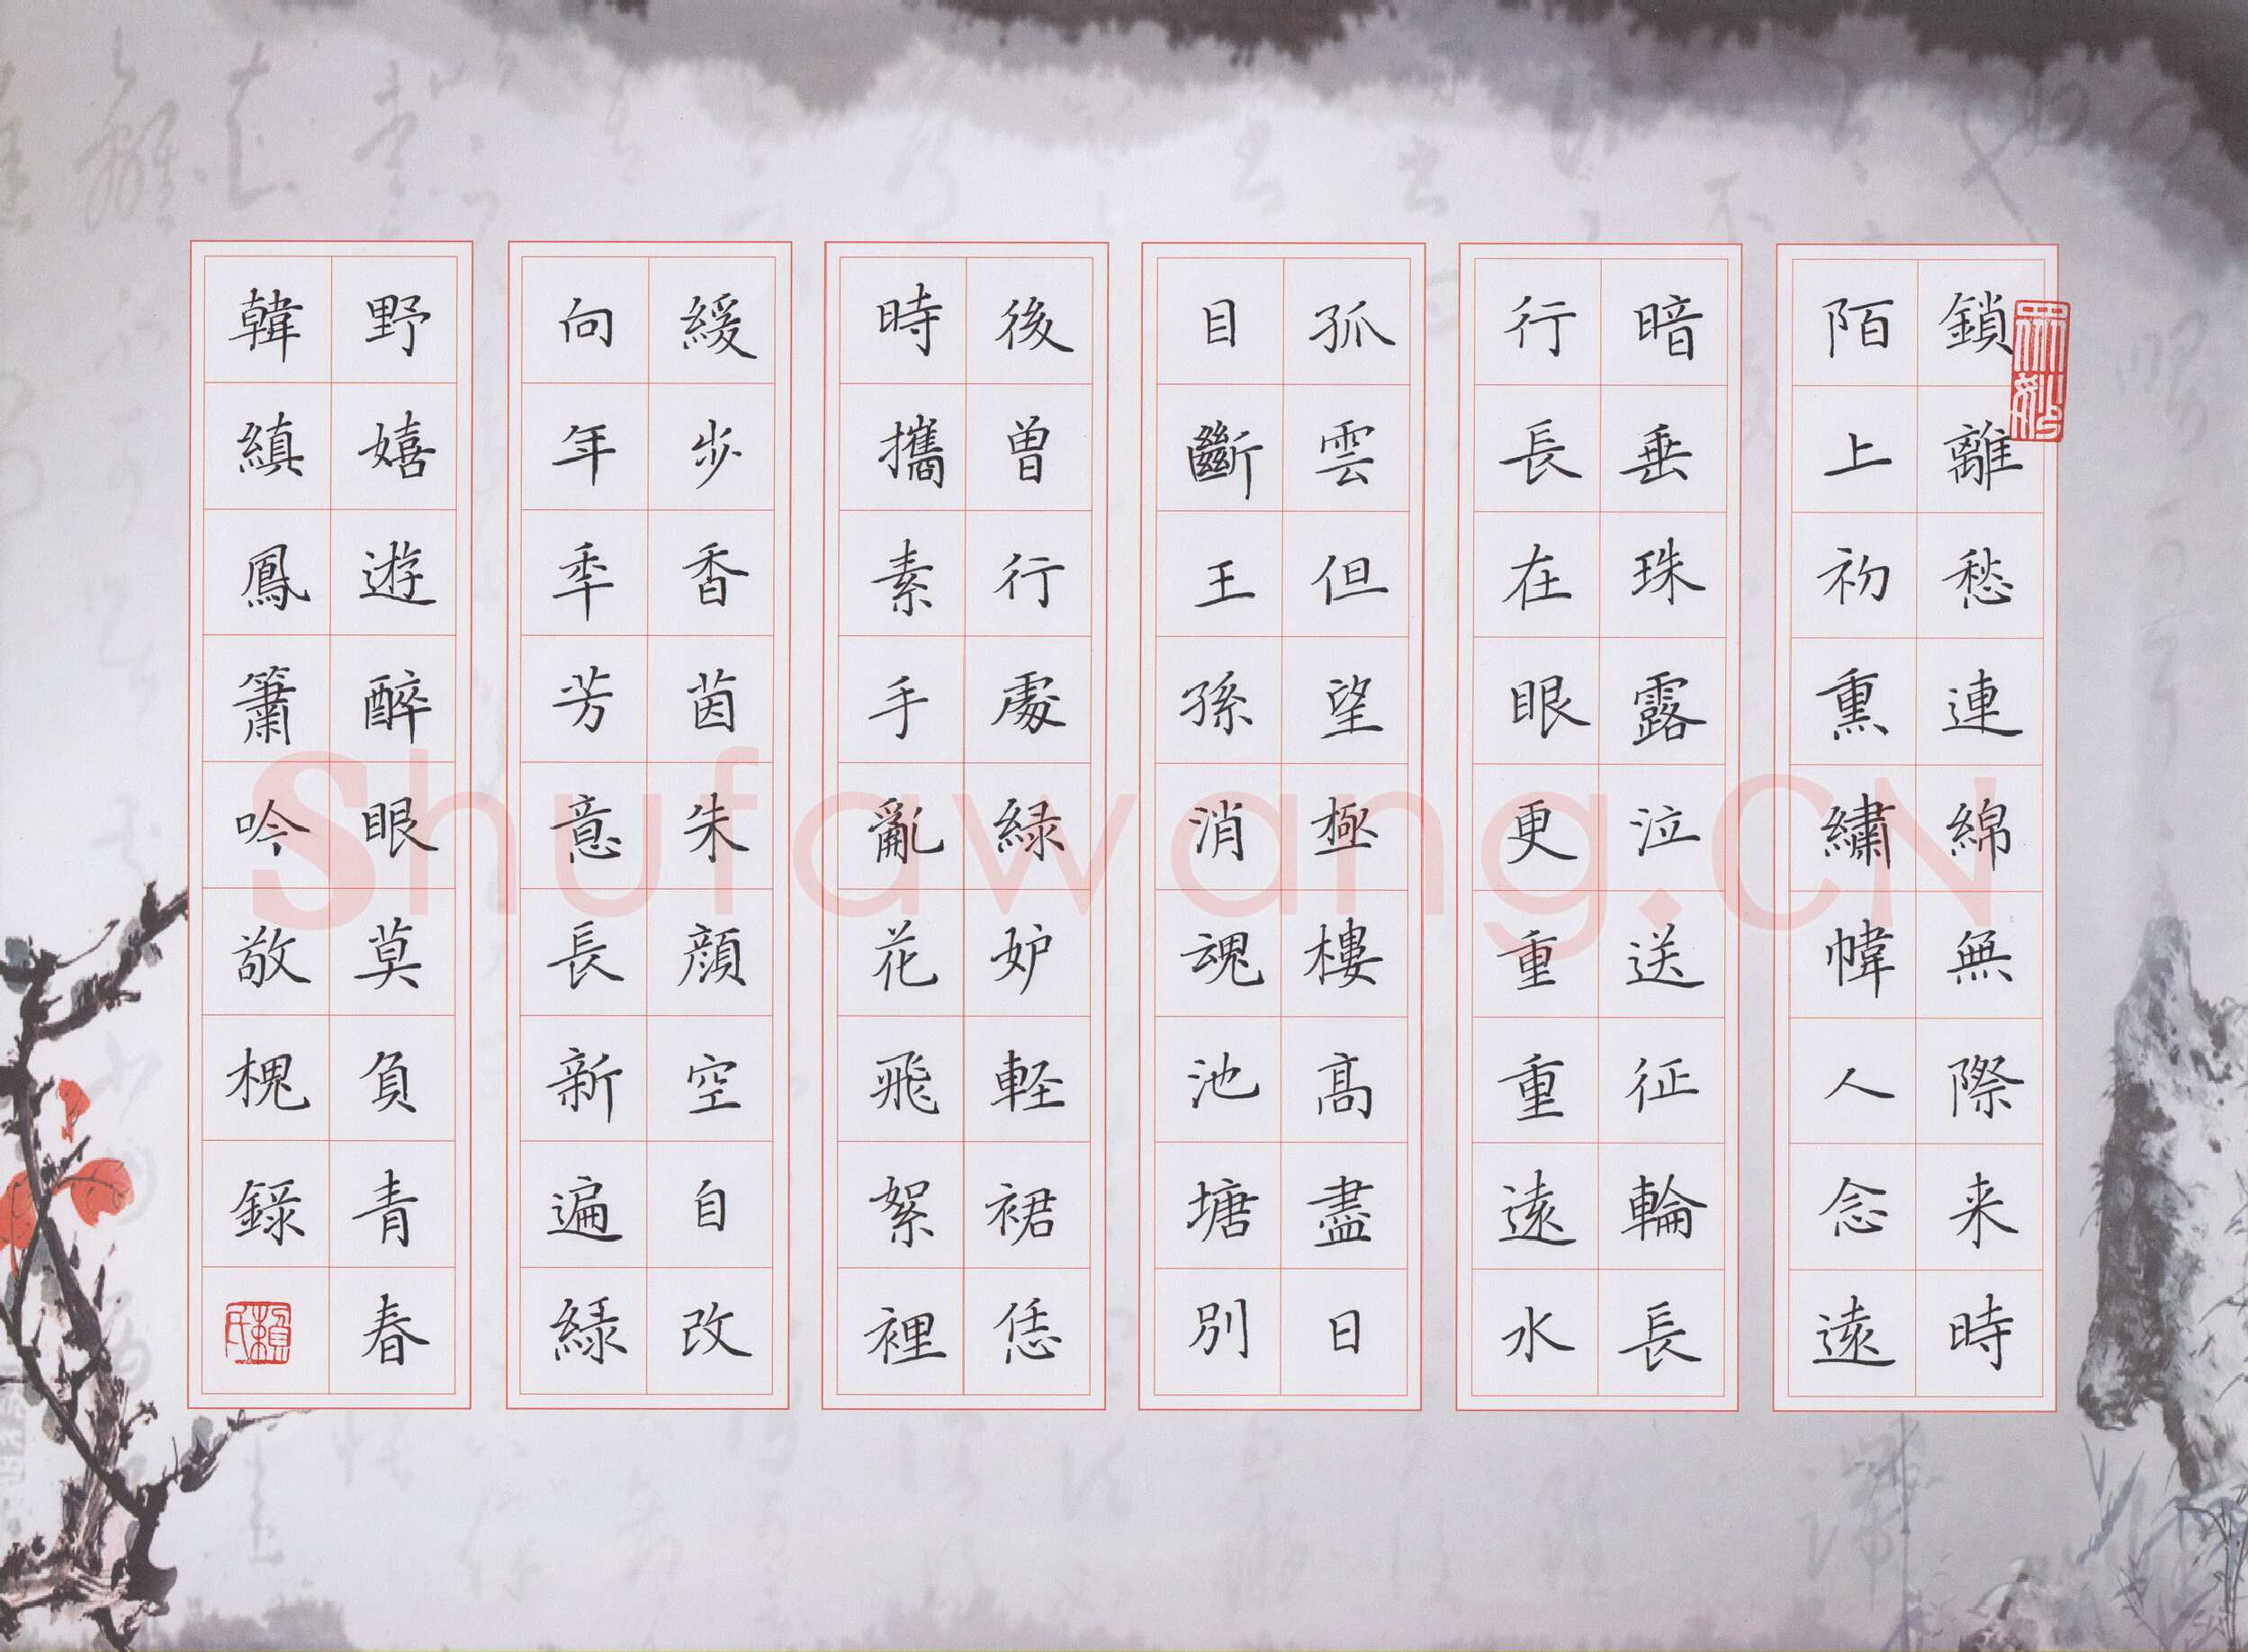 鎖離愁連綿無際来時
陌上初熏繡幃人念遠
暗垂珠露泣送征輪長
行長在眼更重重遠水
孤雲但望極樓高盡日
目斷王孫消魂池塘別
後曾行處緑妒軽裙恁
時攜素手亂花飛絮裡
緩步香茵朱顔空自改
向年年芳意長新遍緑
野嬉遊醉眼莫負青春
韓縝鳳簫吟敬槐録
賴氏
Shufawang.CN